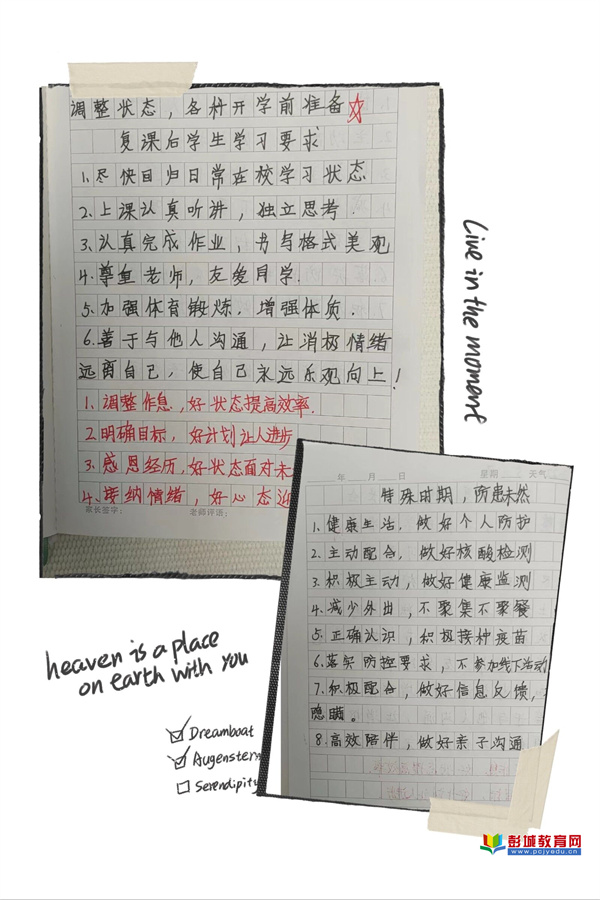 调整状态，各种开学前准备
复课后学生学习要求
1、尽快回归日常在校学习状态
2、上课认真听讲，独立思考.
3、认真完成作业，书写格式美观
4、尊重老师，友爱同学.
5、加强体育锻炼，增强体质.
6、善于与他人沟通，让消极情绪
远离自己，使自己永远乐观向上！
1、调整作息，好状态提高效率.
2、明确目标，好计划让人进步
3、感恩经历，好状态面对未
4、接纳情绪，好心态迎
家长签字： 老师评语：
Live in the moment
年 月 日 星期 天气
特殊时期，防患未然
1、健康生活，做好个人防护
2、主动配合，做好核酸检测
3、积极主动，做好健康监测
4、减少外出，不聚集不聚餐
5、正确认识，积极接种疫苗
6、落实防控要求，不参加线下活动
7、积极配合，做好信息反馈，
隐瞒。
8、高效陪伴，做好亲子沟通
heaven is a place
on earth with you
Dreamboat
Augenstern
Serendipity
彭城教育网
www.pcjyedu.cn